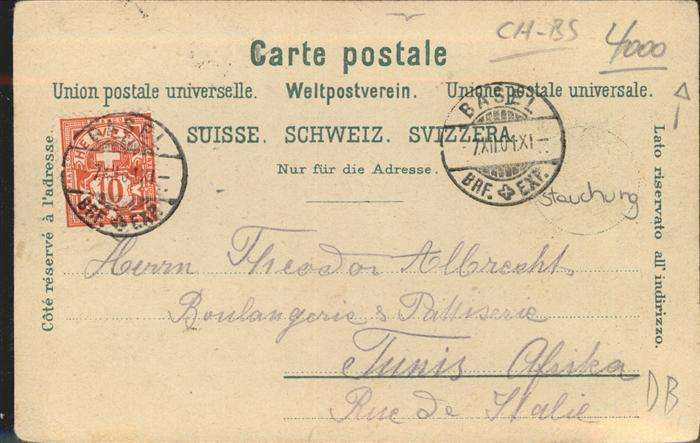 CH-BS
4000
Carte postale
Union postale universelle. Weltpostverein. Unione postale universale.
SUISSE. SCHWEIZ. SVIZZERA.
Nur für die Adresse.
Côté réservé à l'adresse.
Lato riservato all' indirizzo.
BASEL
7.XII.04.XI
BRF. EXP.
BASEL
BRF. EXP.
10
Stauchung
Herrn Theodor Albrecht
Boulangerie & Pattiserie
Tunis Afrika
Rue de Italie
DB